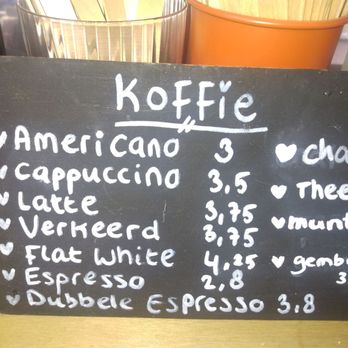 Koffie
Americano 3
Cappuccino 3,5
Latte 3,75
Verkeerd 3,75
Flat White 4,25
Espresso 2,8
Dubbele Espresso 3,8
cha
Thee
munt
gemb
3